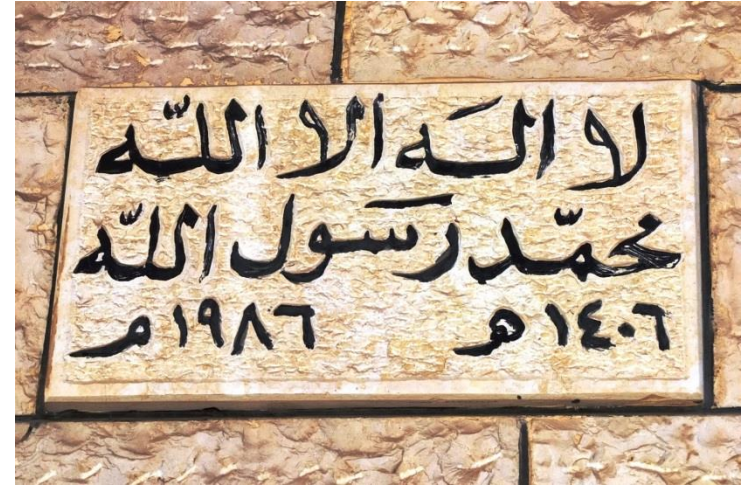 لا الَه الا اللّه
محمّد رَسول اللّه
١٤٠٦ ه ١٩٨٦ م